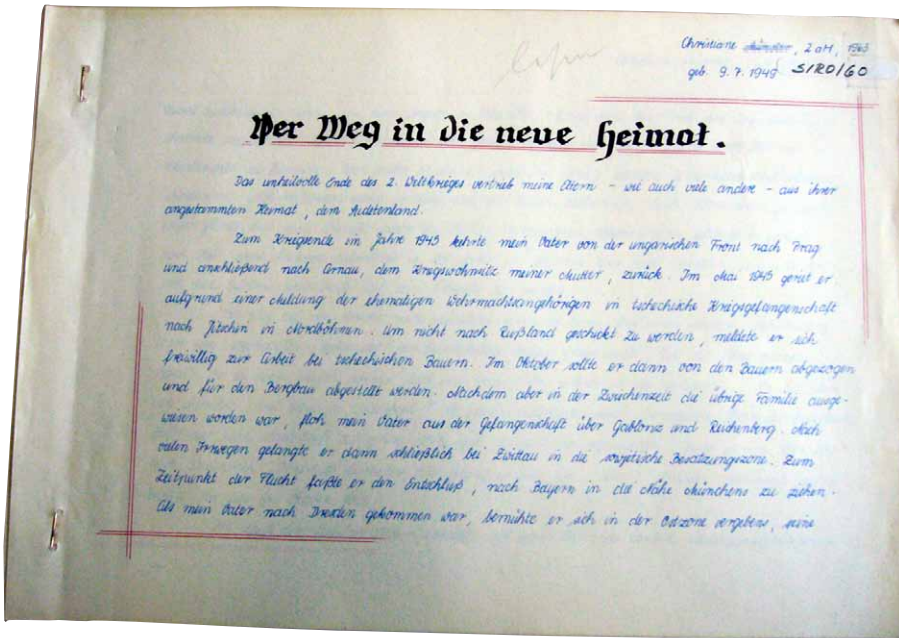 Christiane , 2 aH, 1965
geb. 9.7.1949 S/RO/60
Der Weg in die neue Heimat.
Das unheilvolle Ende des 2. Weltkrieges vertrieb meine Eltern - wie auch viele andere - aus ihrer
angestammten Heimat, dem Sudetenland.
Zum Kriegsende im Jahre 1945 kehrte mein Vater von der ungarischen Front nach Prag
und anschließend nach Arnau, dem Kriegswohnsitz meiner Mutter, zurück. Im Mai 1945 geriet er
aufgrund einer Meldung der ehemaligen Wehrmachtsangehörigen in tschechische Kriegsgefangenschaft
nach Jitschin in Nordböhmen. Um nicht nach Rußland geschickt zu werden, meldete er sich
freiwillig zur Arbeit bei tschechischen Bauern. Im Oktober sollte er dann von den Bauern abgezogen
und für den Bergbau abgestellt werden. Nachdem aber in der Zwischenzeit die übrige Familie ausge-
wiesen worden war, floh mein Vater aus der Gefangenschaft über Gablonz und Reichenberg. Nach
vielen Irrwegen gelangte er dann schließlich bei Zwittau in die sowjetische Besatzungszone. Zum
Zeitpunkt der Flucht faßte er den Entschluß, nach Bayern in die Nähe Münchens zu ziehen.
Als mein Vater nach Dresden gekommen war, bemühte er sich in der Ostzone vergebens, seine